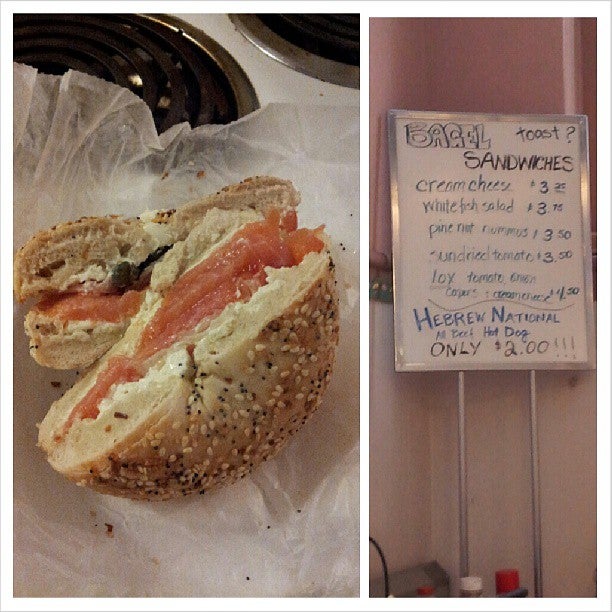 BAGEL toast?
SANDWICHES
cream cheese $3.25
whitefish salad $3.75
pine nut hummus $3.50
sundried tomato $3.50
lox tomato onion
capers creamcheese $4.50
HEBREW NATIONAL
All Beef Hot Dog
ONLY $2.00!!!